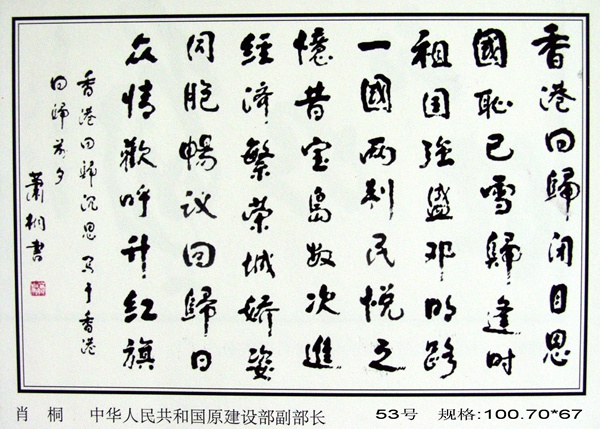 香港回歸闭目思
國恥已雪歸逢时
祖国强盛邓明路
一國两制民悦之
憶昔宝岛数次進
經济繁荣城娇姿
同胞暢议回歸日
众情歡呼升红旗
香港回歸沉思 写于香港
回歸前夕
蕭桐書
肖 桐 中华人民共和国原建设部副部长 53号 规格:100.70*67